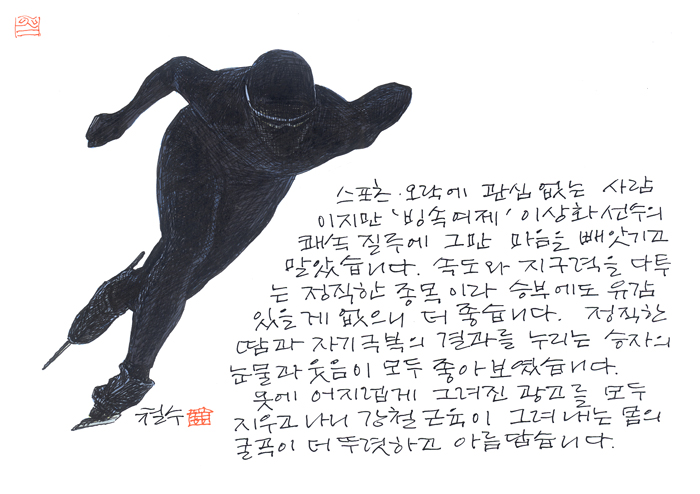 스포츠·오락에 관심 없는 사람
이지만 '빙속여제' 이상화선수의
쾌속 질주에 그만 마음을 빼앗기고
말았습니다. 속도와 지구력을 다투
는 정직한 종목이라 승부에도 유감
있을게 없으니 더 좋습니다. 정직한
땀과 자기극복의 결과를 누리는 승자의
눈물과 웃음이 모두 좋아보였습니다.
옷에 어지럽게 그려진 광고를 모두
지우고나니 강철 근육이 그려내는 몸의
굴곡이 더 뚜렷하고 아름답습니다.
철수